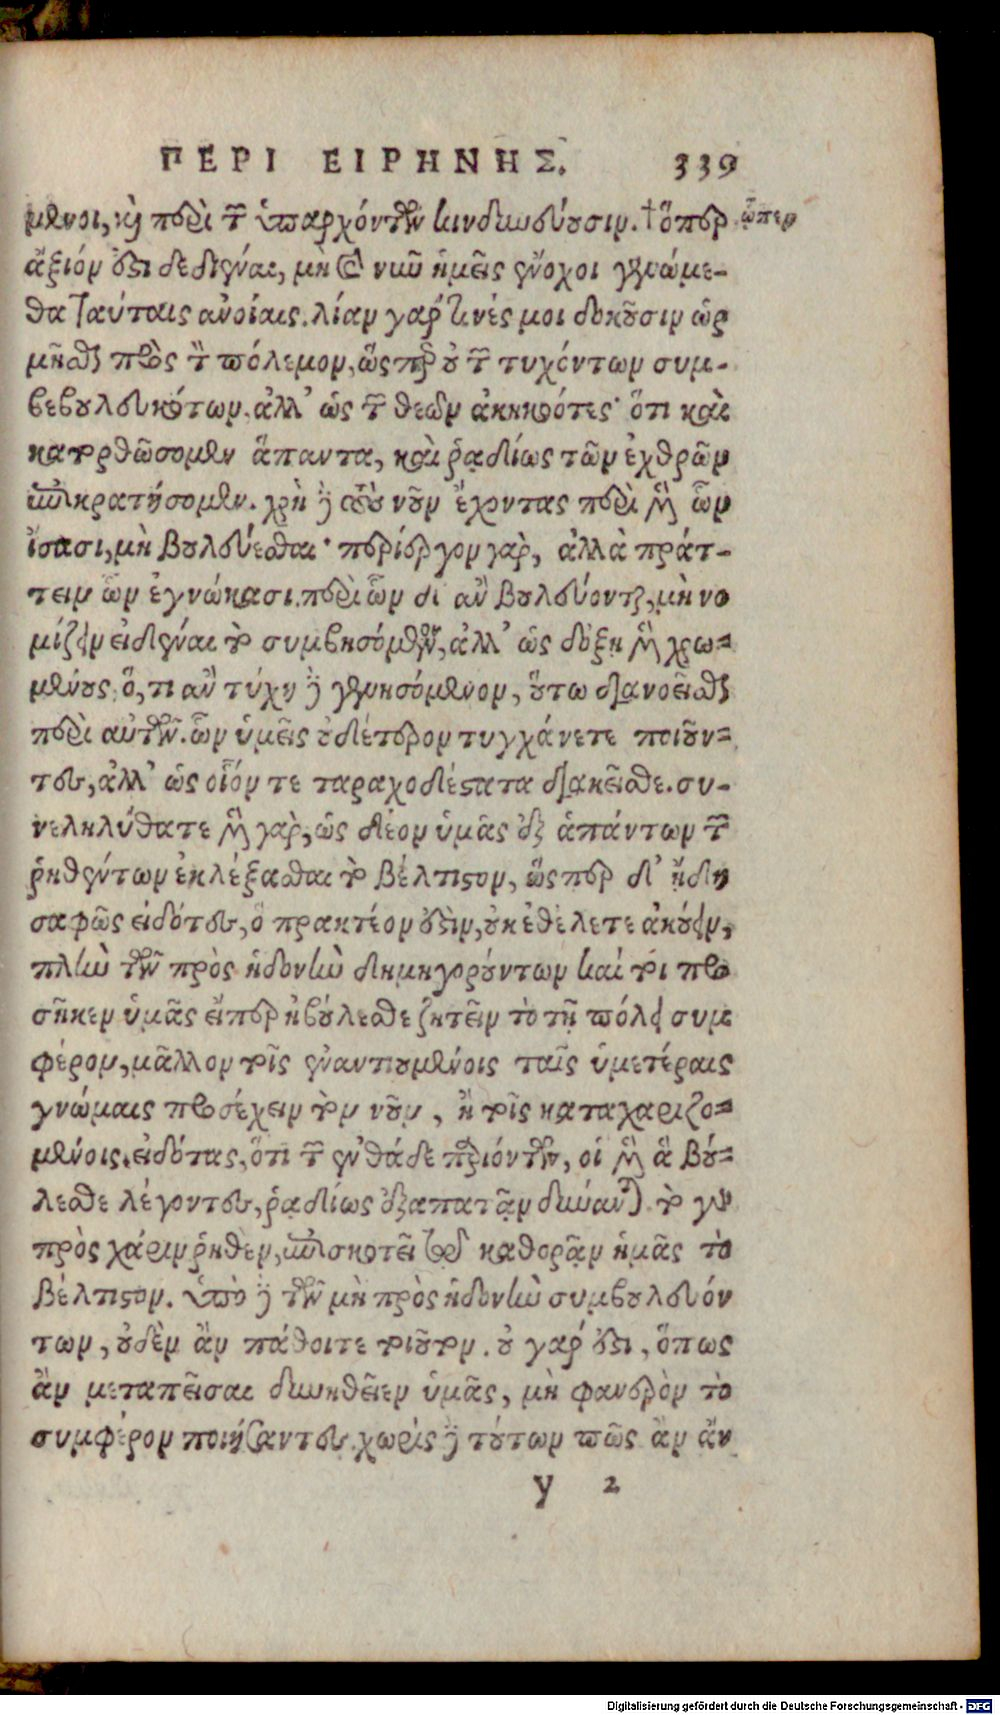 ΠΕΡΙ ΕΙΡΗΝΗΣ. 339
μενοι, καὶ περὶ τῶν ὑπαρχόντων κινδυνεύουσιν. †ὅπερ ὧπερ
ἄξιόν ἐστι δεδιέναι, μὴ καὶ νῦν ἡμεῖς ἔνοχοι γενώμε-
θα ταύταις ἀνοίαις. λίαν γάρ τινές μοι δοκοῦσιν ὡρ
μῆσθαι πρὸς τὸν πόλεμον, ὥσπερ οὐ τῶν τυχόντων συμ-
βεβουλευκότων, ἀλλ’ ὡς τῶν θεῶν ἀκηκοότες· ὅτι καὶ
κατορθώσομεν ἅπαντα, καὶ ῥᾳδίως τῶν ἐχθρῶν
ἐπικρατήσομεν. χρὴ δὲ τοὺς νοῦν ἔχοντας περὶ μὲν ὧν
ἴσασι, μὴ βουλεύεσθαι· περίεργον γὰρ, ἀλλὰ πράτ-
τειν ὧν ἐγνώκασι. περὶ ὧν δι ἂν βουλεύονται, μὴ νο
μίζειν εἰδέναι τὸ συμβησόμενον, ἀλλ’ ὡς δόξῃ μὲν χρω-
μένους, ὅ, τι ἂν τύχῃ δὲ γενησόμενον, οὕτω διανοεῖσθαι
περὶ αὐτῶν. ὧν ὑμεῖς οὐδέτερον τυγχάνετε ποιοῦν-
τες, ἀλλ’ ὡς οἷόν τε ταραχοδέστατα διακεῖσθε. συ-
νεληλύθατε μὲν γὰρ, ὡς δέον ὑμᾶς ἐξ ἁπάντων τῶν
ῥηθέντων ἐκλέξασθαι τὸ βέλτιστον, ὥσπερ δ’ ἤδη
σαφῶς εἰδότες, ὃ πρακτέον ἐστὶν, οὐκ ἐθέλετε ἀκούειν,
πλὴν τῶν πρὸς ἡδονὴν δημηγορούντων καί τοι προ
σῆκεν ὑμᾶς εἴπερ ἠβούλεσθε ζητεῖν τὸ τῇ πόλει συμ
φέρον, μᾶλλον τοῖς ἐναντιουμένοις ταῖς ὑμετέραις
γνώμαις προσέχειν τὸν νοῦν, ἢ τοῖς καταχαριζο-
μένοις. εἰδότας, ὅτι τῶν ἐνθάδε παριόντων, οἱ μὲν ἃ βού-
λεσθε λέγοντες, ῥᾳδίως ἐξαπατᾷν δύνανται. τὸ γὰρ
πρὸς χάριν ῥηθὲν, ἐπισκοτεῖ τοῦ καθορᾷν ἡμᾶς τὸ
βέλτιστον. ὑπὸ δὲ τῶν μὴ πρὸς ἡδονὴν συμβουλευόν
των, οὐδὲν ἂν πάθοιτε τοιοῦτον. οὐ γάρ ἐστι, ὅπως
ἂν μεταπεῖσαι δυνηθεῖεν ὑμᾶς, μὴ φανερὸν τὸ
συμφέρον ποιήσαντες. χωρὶς δὲ τούτων πῶς ἂν ἄν
y 2
Digitalisierung gefördert durch die Deutsche Forschungsgemeinschaft - DFG